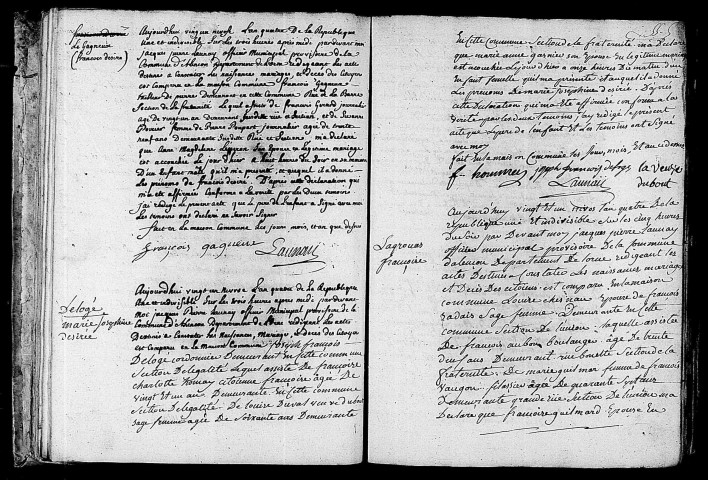 Le Gagneur
(françois désiré)
Aujourdhuy vingt un nivose L'an quatre De la Republique
une et indivisible Sur les trois heures apres midi pardevant moi
jacques pierre Launay officier Municipal provisoire de la
Commune d'Alençon Departement de l'orne redigeant les actes
Destinés a Constater les naissances mariages et Décès des Citoyens
est Comparu en la maison Commune françois Gagneur
demeurant en cette Commune Rue de la Barre
Section de la fraternité Lequel assisté de françois Gerard
agé de vingt un an Demeurant susditte rue et Section, et de Susanne
femme de Pierre journalier agée de trente
ans demeurante Susditte Rue et Section m'a déclaré
que Anne Magdelene Son Epouse en légitime mariage
est accouchée le jour d'hier a huit heures du Soir en sa maison
D'un Enfant male qu'il m'a presenté et auquel il a donné
Les prénoms de francois désiré. D'après cette declaration qui
m'a été affirmée Conforme a la verité par les dits temoins
j'ai redigé le present acte que le pere de l'enfant a Signé avec moi
les temoins ont declaré ne savoir Signer
fait en la maison Commune Les jours mois et an que dessus
françois gagneure Launai
Delogé
marie josephine
desirée
Aujourdhuy vingt un nivose L'an quatre de la Republique
Une et indivisible Sur les trois heures apres midi pardevant
Moi jacques Pierre Launay officier Municipal provisoire de la
Commune d'Alencon Departement de l'Orne redigeant les actes
Destinés a Constater les Naissances, Mariages, et Décès des Citoyens
est Comparu en la Maison Commune joseph françois
Delogé cordonnier Demeurant En Cette Commune
Section De legalité Lequel assisté De françoise
charlotte citoienne françoise agée De
vingt Et un ans Demeurante En Cette Commune
Section Delegalité De louise Duval veuve dubout
sage femme agée De Soixante ans Demeurante
En Cette Commune Section de la fraternité ma Declaré
que marie anne garnier son Epouse En legitime mariage
est accouchée Lejour d'hier a onze heures Du matin D'un
Enfant femelle qui ma presenté Et auquel il a donné
Les prenoms De marie josephine desirée. D'après
cette Declaration qui ma Eté affirmée conforme a la
verité par Les deux Temoins jay redigé le present
acte que Lepere de Lenfant Et Les temoins ont Signé
avec moy
fait En la maison Commune Les jours, mois, Et an cidessus
joseph francois Deloge la veuve
Launai dubout
françoise
Aujourd'huy vingt Et un nivos Lan quatre De la
republique une Et indivisible Sur les cinq heures
Du soir par Devant moy jacques pierre Launay
officier municipal provisoire De la Commune
dalencon Departement De Lorne redigeant les
actes Destinés a Constater Les naissances mariages
Et Décès Des citoiens. est comparu En la maison
commune Louise Epouse De françois
Vadais Sage femme. Demeurante En Cette
commune Section De lunion: laquelle assistée
De françois aubon Boulanger agé De trente
Deux ans Demeurant rue Section de la
fraternité: De marie guilmar femme De francois
vaugon filassier agée De quarante Sept ans
Demeurante grande rüe Section De lunion ma
Declaré que francoise guilmard Epouse En